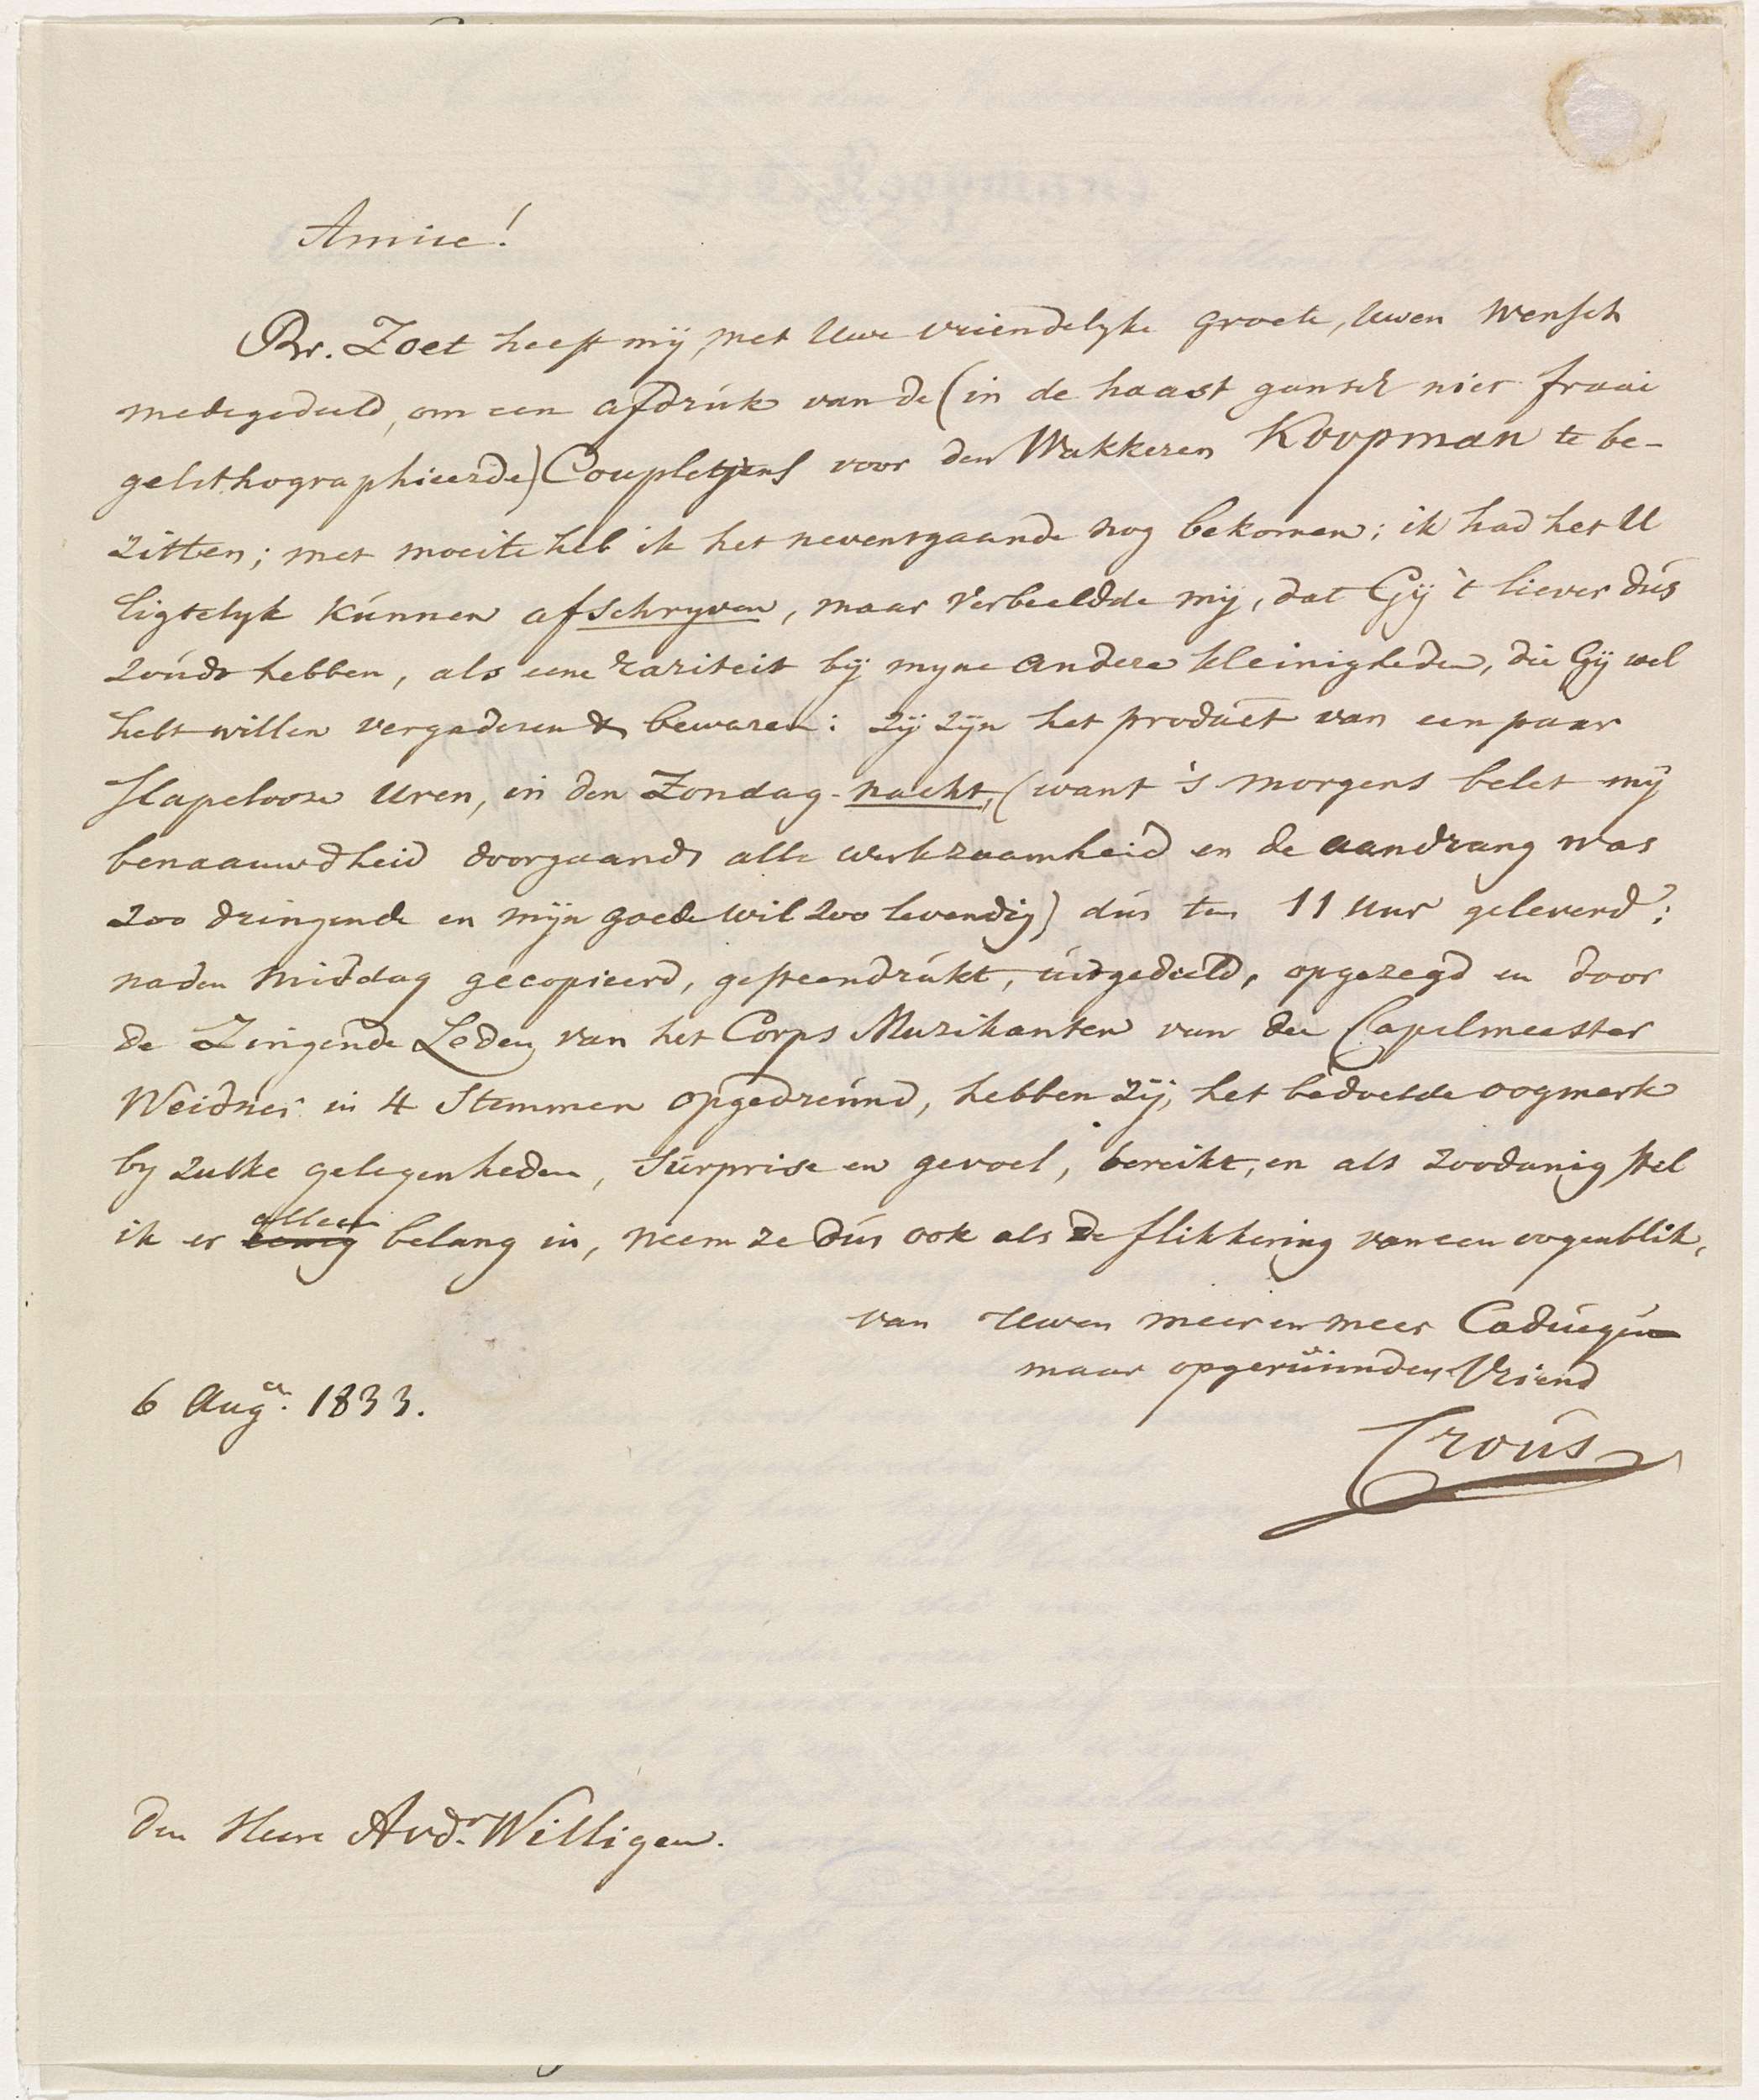 Amice!
Br. Zoet heeft mÿ, met Uwe vriendelyke groete, Uwen Wensch
medegedeeld, om een afdruk van de (in de haast gansch niet fraai
gelithographieerde) Coupletjens voor den Wakkeren Koopman te be-
zitten; met moeite heb ik het nevensgaande nog bekomen; ik had het U
ligtelyk kunnen afschryven, maar verbeeldde mÿ, dat Gÿ 't liever dus
zoudt hebben, als eene rariteit bÿ myne andere kleinigheden, die Gÿ wel
hebt willen vergaderen & bewaren: zÿ zÿn het product van een paar
slapelooze Uren, in den Zondag-nacht, (want 's morgens belet mÿ
benaauwdheid doorgaands alle werkzaamheid en de aandrang was
zoo dringende en mÿn goede wil zoo levendig) dus ten 11 Uur geleverd;
na den middag gecopieerd, gesteendrukt, uitgedeeld, opgezegd en door
de Zingende Leden van het Corps Muzikanten van den Capelmeester
Weidner in 4 Stemmen opgedreund, hebben zÿ, het bedoelde oogmerk
by zulke gelegenheden, Surprise en gevoel, bereikt, en als zoodanig stel
ik er alleen eenig belang in, neem ze dus ook als de flikkering van een oogenblik,
van Uwen meer en meer Caducquen
maar opgeruimden Vriend
6 Aug. 1833.
Crous
Den Heere A vdr Willigen.